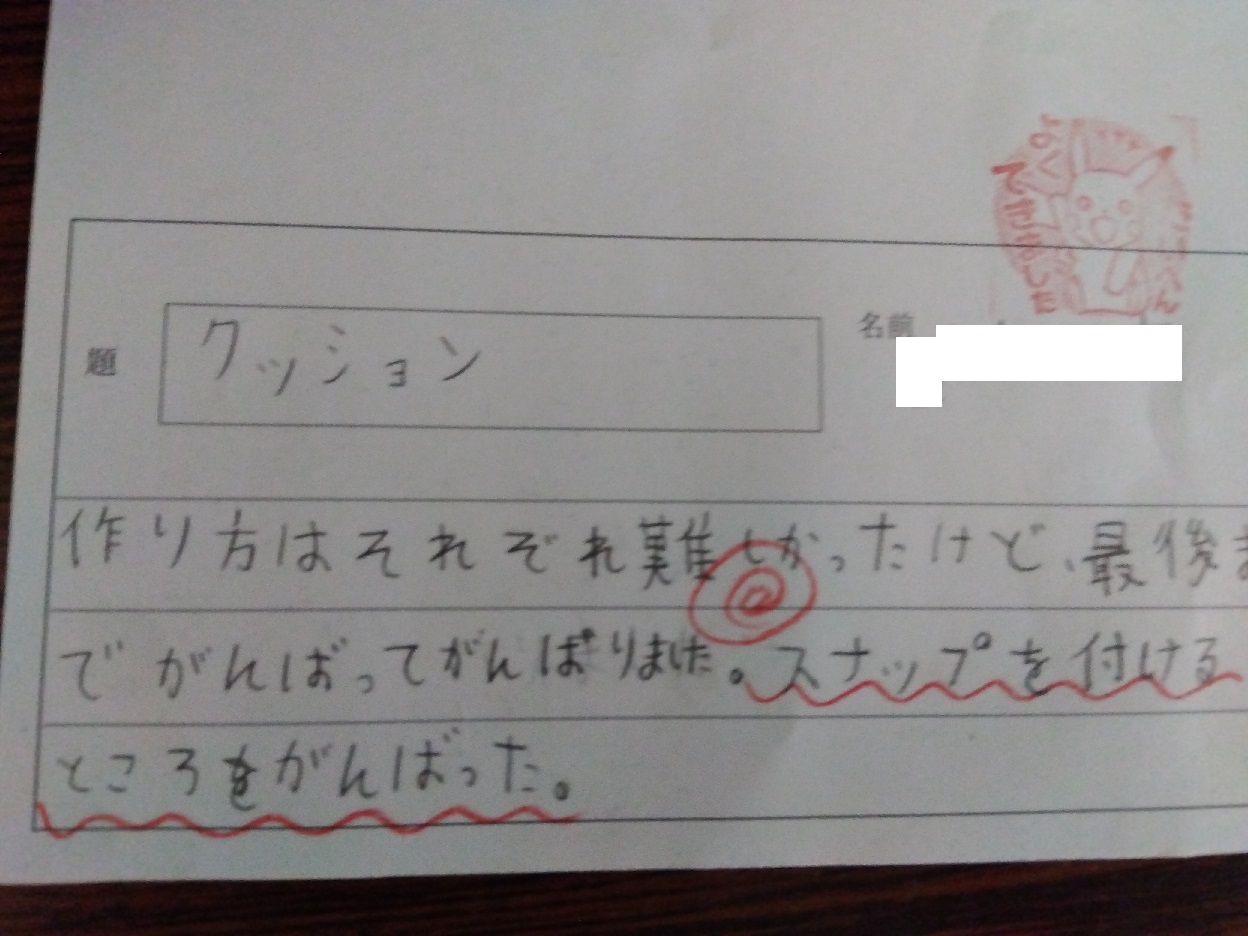 よく
できました
題
クッション
名前
作り方はそれぞれ難しかったけど、最後ま
でがんばってがんばりました。スナップを付ける
ところをがんばった。